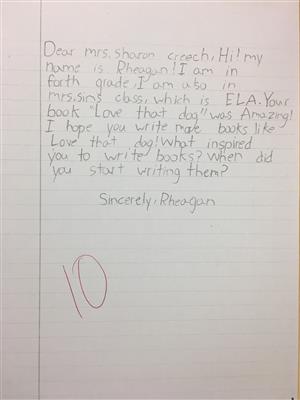 Dear mrs. Sharon creech, Hi! my
name is Rheagan! I am in
forth grade, I am also in
mrs. sims class, which is ELA. Your
book "Love that dog" was Amazing!
I hope you write more books like
Love that dog! What inspired
you to write books? When did
you start writing them?
Sincerely, Rheagan
10